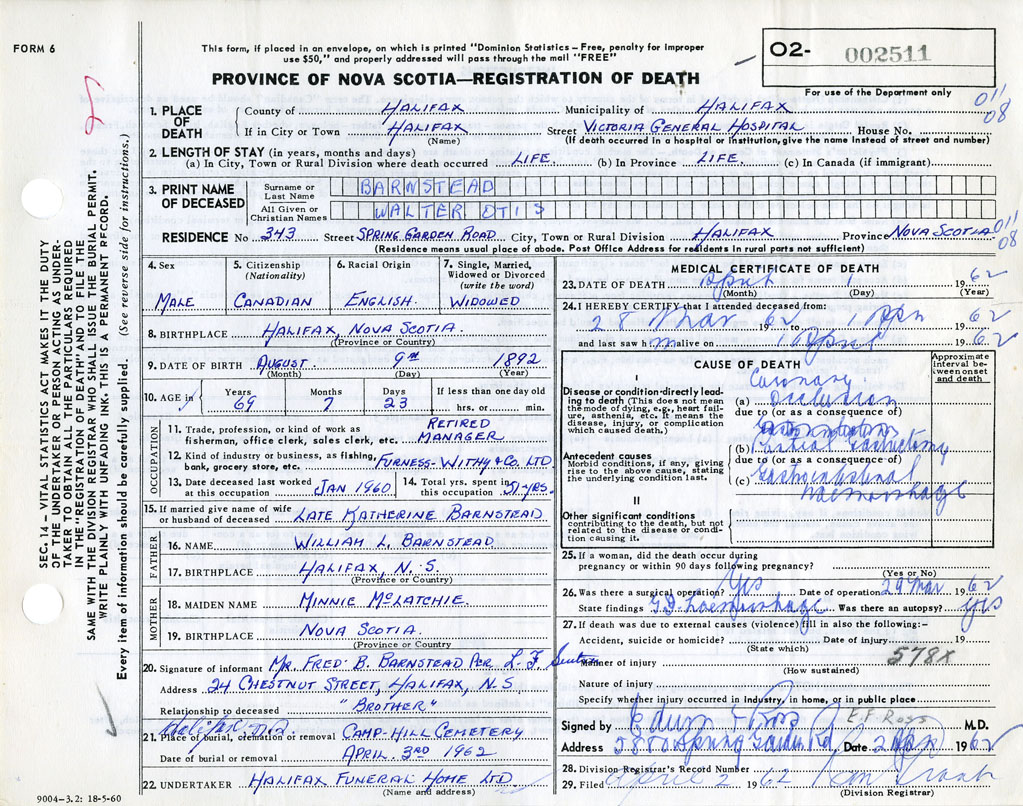 FORM 6
This form, if placed in an envelope, on which is printed "Dominion Statistics – Free, penalty for improper
use $50," and properly addressed will pass through the mail "FREE"
PROVINCE OF NOVA SCOTIA—REGISTRATION OF DEATH
O2- 002511
For use of the Department only
011
08
1. PLACE OF DEATH
County of HALIFAX Municipality of HALIFAX
If in City or Town HALIFAX Street VICTORIA GENERAL HOSPITAL House No.
(Name) (If death occurred in a hospital or institution, give the name instead of street and number)
2. LENGTH OF STAY (in years, months and days)
(a) In City, Town or Rural Division where death occurred LIFE (b) In Province LIFE. (c) In Canada (if immigrant)
3. PRINT NAME OF DECEASED
Surname or Last Name BARNSTEAD
All Given or Christian Names WALTER OTIS
RESIDENCE No 343 Street SPRING GARDEN ROAD City, Town or Rural Division HALIFAX Province NOVA SCOTIA
(Residence means usual place of abode. Post Office Address for residents in rural parts not sufficient)
011
08
4. Sex MALE
5. Citizenship (Nationality) CANADIAN
6. Racial Origin ENGLISH.
7. Single, Married, Widowed or Divorced (write the word) WIDOWED
8. BIRTHPLACE HALIFAX, NOVA SCOTIA.
(Province or Country)
9. DATE OF BIRTH AUGUST 9TH 1892
(Month) (Day) (Year)
10. AGE in Years 69 Months 7 Days 23 If less than one day old hrs. or min.
OCCUPATION
11. Trade, profession, or kind of work as fisherman, office clerk, sales clerk, etc. RETIRED MANAGER
12. Kind of industry or business, as fishing, bank, grocery store, etc. FURNESS-WITHY & CO. LTD
13. Date deceased last worked at this occupation JAN 1960
14. Total yrs. spent in this occupation 51 YRS.
15. If married give name of wife or husband of deceased LATE KATHERINE BARNSTEAD
FATHER
16. NAME WILLIAM L. BARNSTEAD
17. BIRTHPLACE HALIFAX, N. S.
(Province or Country)
MOTHER
18. MAIDEN NAME MINNIE MCLATCHIE.
19. BIRTHPLACE NOVA SCOTIA.
(Province or Country)
20. Signature of informant MR. FRED. B. BARNSTEAD PER L. F.
Address 24 CHESTNUT STREET, HALIFAX, N. S
Relationship to deceased "BROTHER."
21. Place of burial, cremation or removal CAMP-HILL CEMETERY
Date of burial or removal APRIL 3RD 1962
22. UNDERTAKER HALIFAX FUNERAL HOME LTD
(Name and address)
MEDICAL CERTIFICATE OF DEATH
23. DATE OF DEATH April 1 1962
(Month) (Day) (Year)
24. I HEREBY CERTIFY that I attended deceased from:
28 Mar 1962 to 1 Apr 1962
and last saw him alive on 1 April 1962
CAUSE OF DEATH
Approximate interval between onset and death
I
Disease or condition directly leading to death (This does not mean the mode of dying, e.g., heart failure, asthenia, etc. It means the disease, injury, or complication which caused death.)
(a) Coronary Occlusion
due to (or as a consequence of
Antecedent causes
Morbid conditions, if any, giving rise to the above cause, stating the underlying condition last.
(b) Partial Gastrectomy
due to (or as a consequence of
(c) Gastrointestinal haemorrhage
II
Other significant conditions
contributing to the death, but not related to the disease or condition causing it.
25. If a woman, did the death occur during
pregnancy or within 90 days following pregnancy?
(Yes or No)
26. Was there a surgical operation? Yes Date of operation 29 Mar 1962
State findings G.I. haemorrhage Was there an autopsy? yes
27. If death was due to external causes (violence) fill in also the following:-
Accident, suicide or homicide? Date of injury 19
(State which)
578X
Manner of injury
(How sustained)
Nature of injury
Specify whether injury occurred in Industry, in home, or in public place
Signed by Edwin F Ross E.F. Ross M.D.
Address 5880 Spring Garden Rd, Date 2 Apr 1962
28. Division Registrar's Record Number
29. Filed April 2 1962
(Division Registrar)
SEC. 14 - VITAL STATISTICS ACT MAKES IT THE DUTY
OF THE UNDERTAKER OR PERSON ACTING AS UNDER-
TAKER TO OBTAIN ALL THE PARTICULARS REQUIRED
IN THE "REGISTRATION OF DEATH" AND TO FILE THE
SAME WITH THE DIVISION REGISTRAR WHO SHALL ISSUE THE BURIAL PERMIT.
WRITE PLAINLY WITH UNFADING INK. THIS IS A PERMANENT RECORD.
Every item of information should be carefully supplied. (See reverse side for instructions.)
9004-3.2: 18-5-60